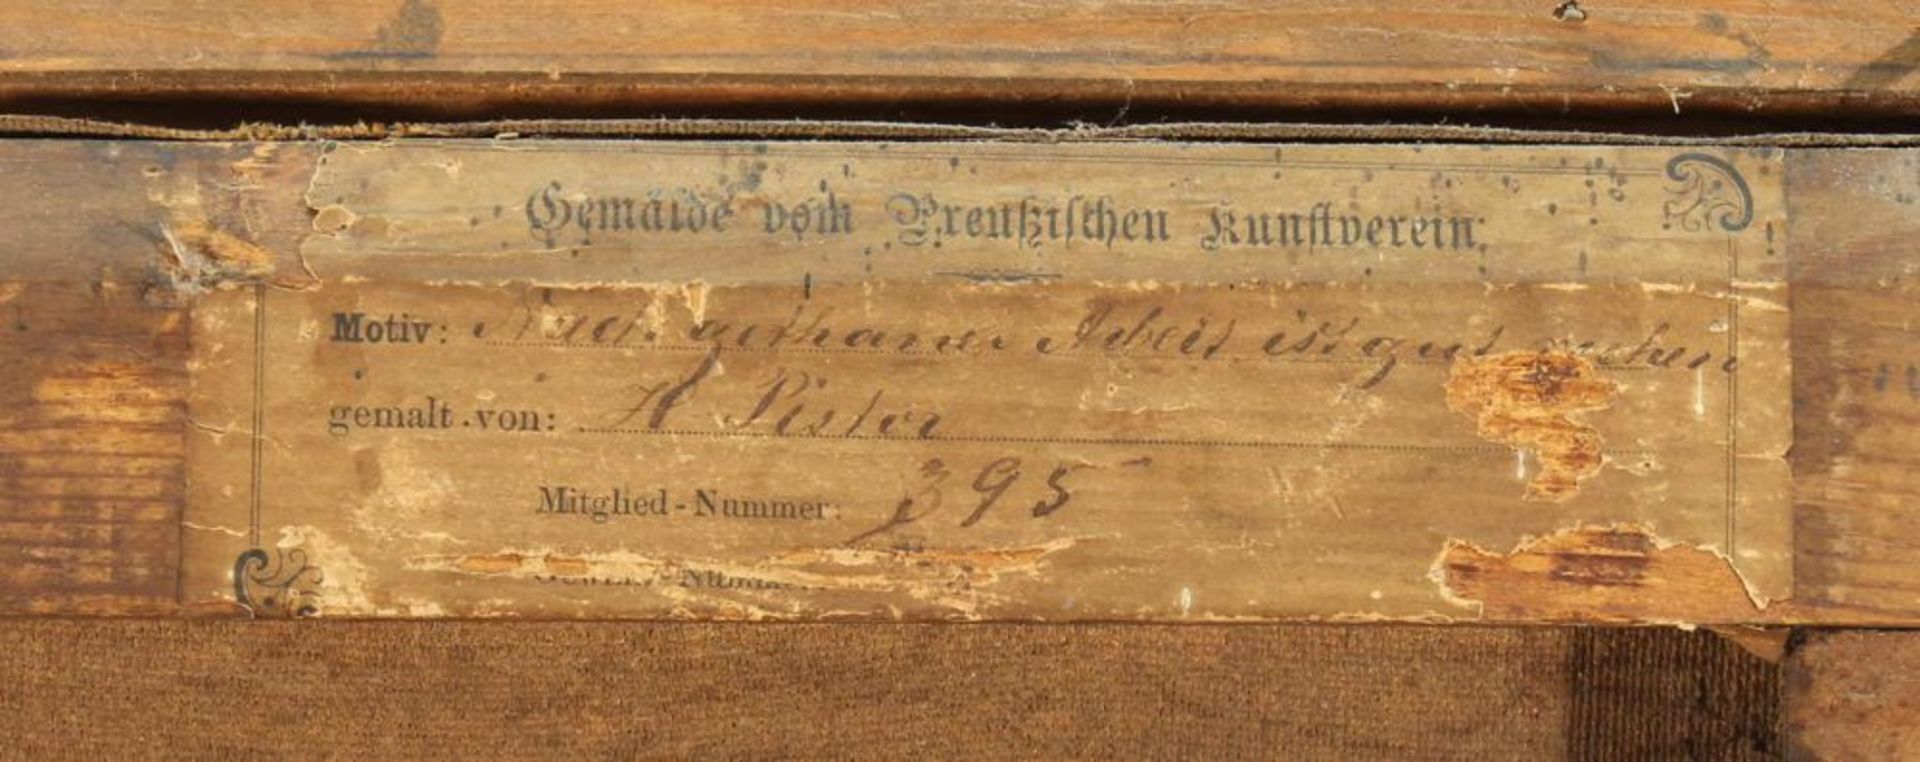 Gemälde vom Preußischen Kunstverein:
Motiv: Nach gethaner Arbeit ist gut ruhen
gemalt von: H Pistor
Mitglied-Nummer: 395
-Nummer